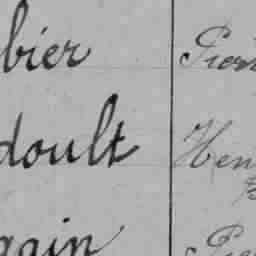 bier Pier
doult Hen
gain Pie